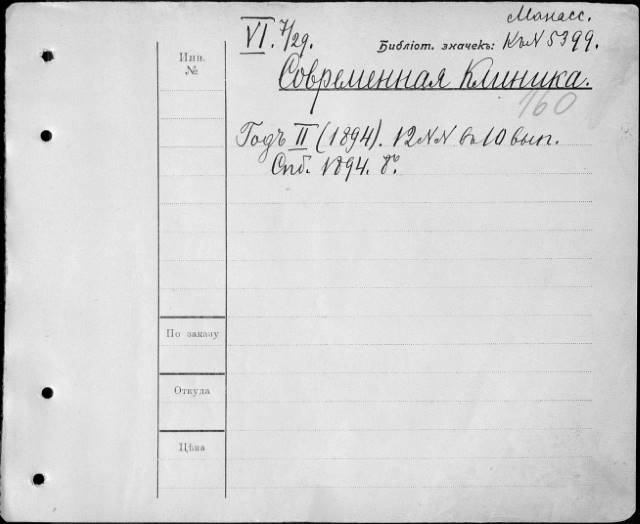 Манасс.
VI. 7/29. Библіот. значекъ: КъN 5399.
Инв.
№
Современная Клиника.
160
Годъ II (1894). 12NN въ 10 вып.
Спб. 1894. 8°.
По заказу
Откуда
Цѣна